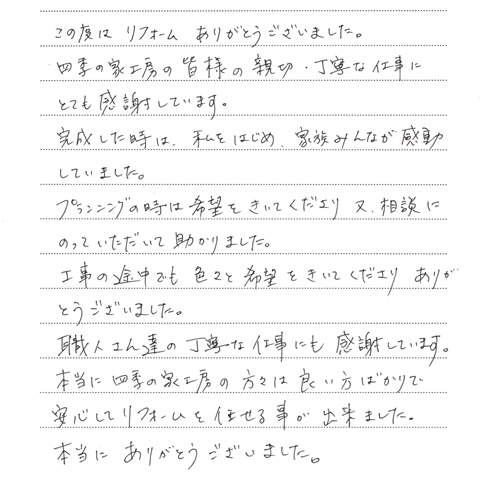 この度は リフォーム ありがとうございました。
四季の家工房の皆様の親切・丁寧な仕事に
とても感謝しています。
完成した時は、私をはじめ、家族みんなが感動
していました。
プランニングの時は希望をきいてくださり 又、相談に
のっていただいて助かりました。
工事の途中でも 色々と希望をきいてくださり ありが
とうございました。
職人さん達の丁寧な仕事にも 感謝しています。
本当に 四季の家工房の 方々は 良い方ばかりで
安心してリフォームを任せる事が 出来ました。
本当に ありがとうございました。